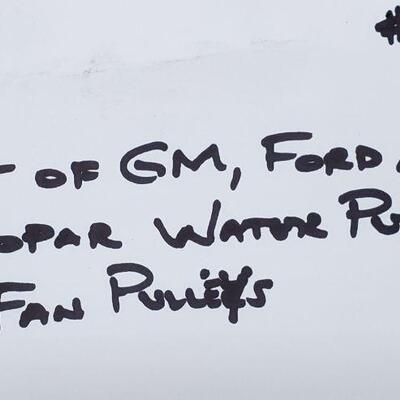 #
T OF GM, FORD
OPAR WATUR PU
FAN PULLEYS